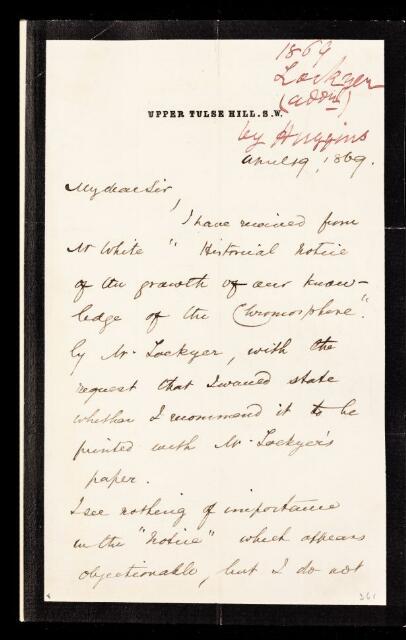 1869
Lockyer
(addn)
UPPER TULSE HILL. S.W.
by Huggins
April 19, 1869.
My dear Sir,
I have received from
Mr White " Historical Notice
of the growth of our know-
ledge of the Chromosphere".
by Mr. Lockyer, with the
request that I would state
whether I recommend it to be
printed with Mr. Lockyer's
paper.
I see nothing of importance
in the "Notice" which appears
objectionable, but I do not
261